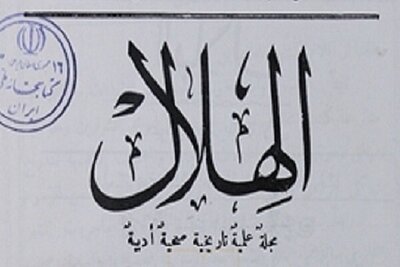 الهلال
مجلة علمية تاريخية صحية أدبية
ايران